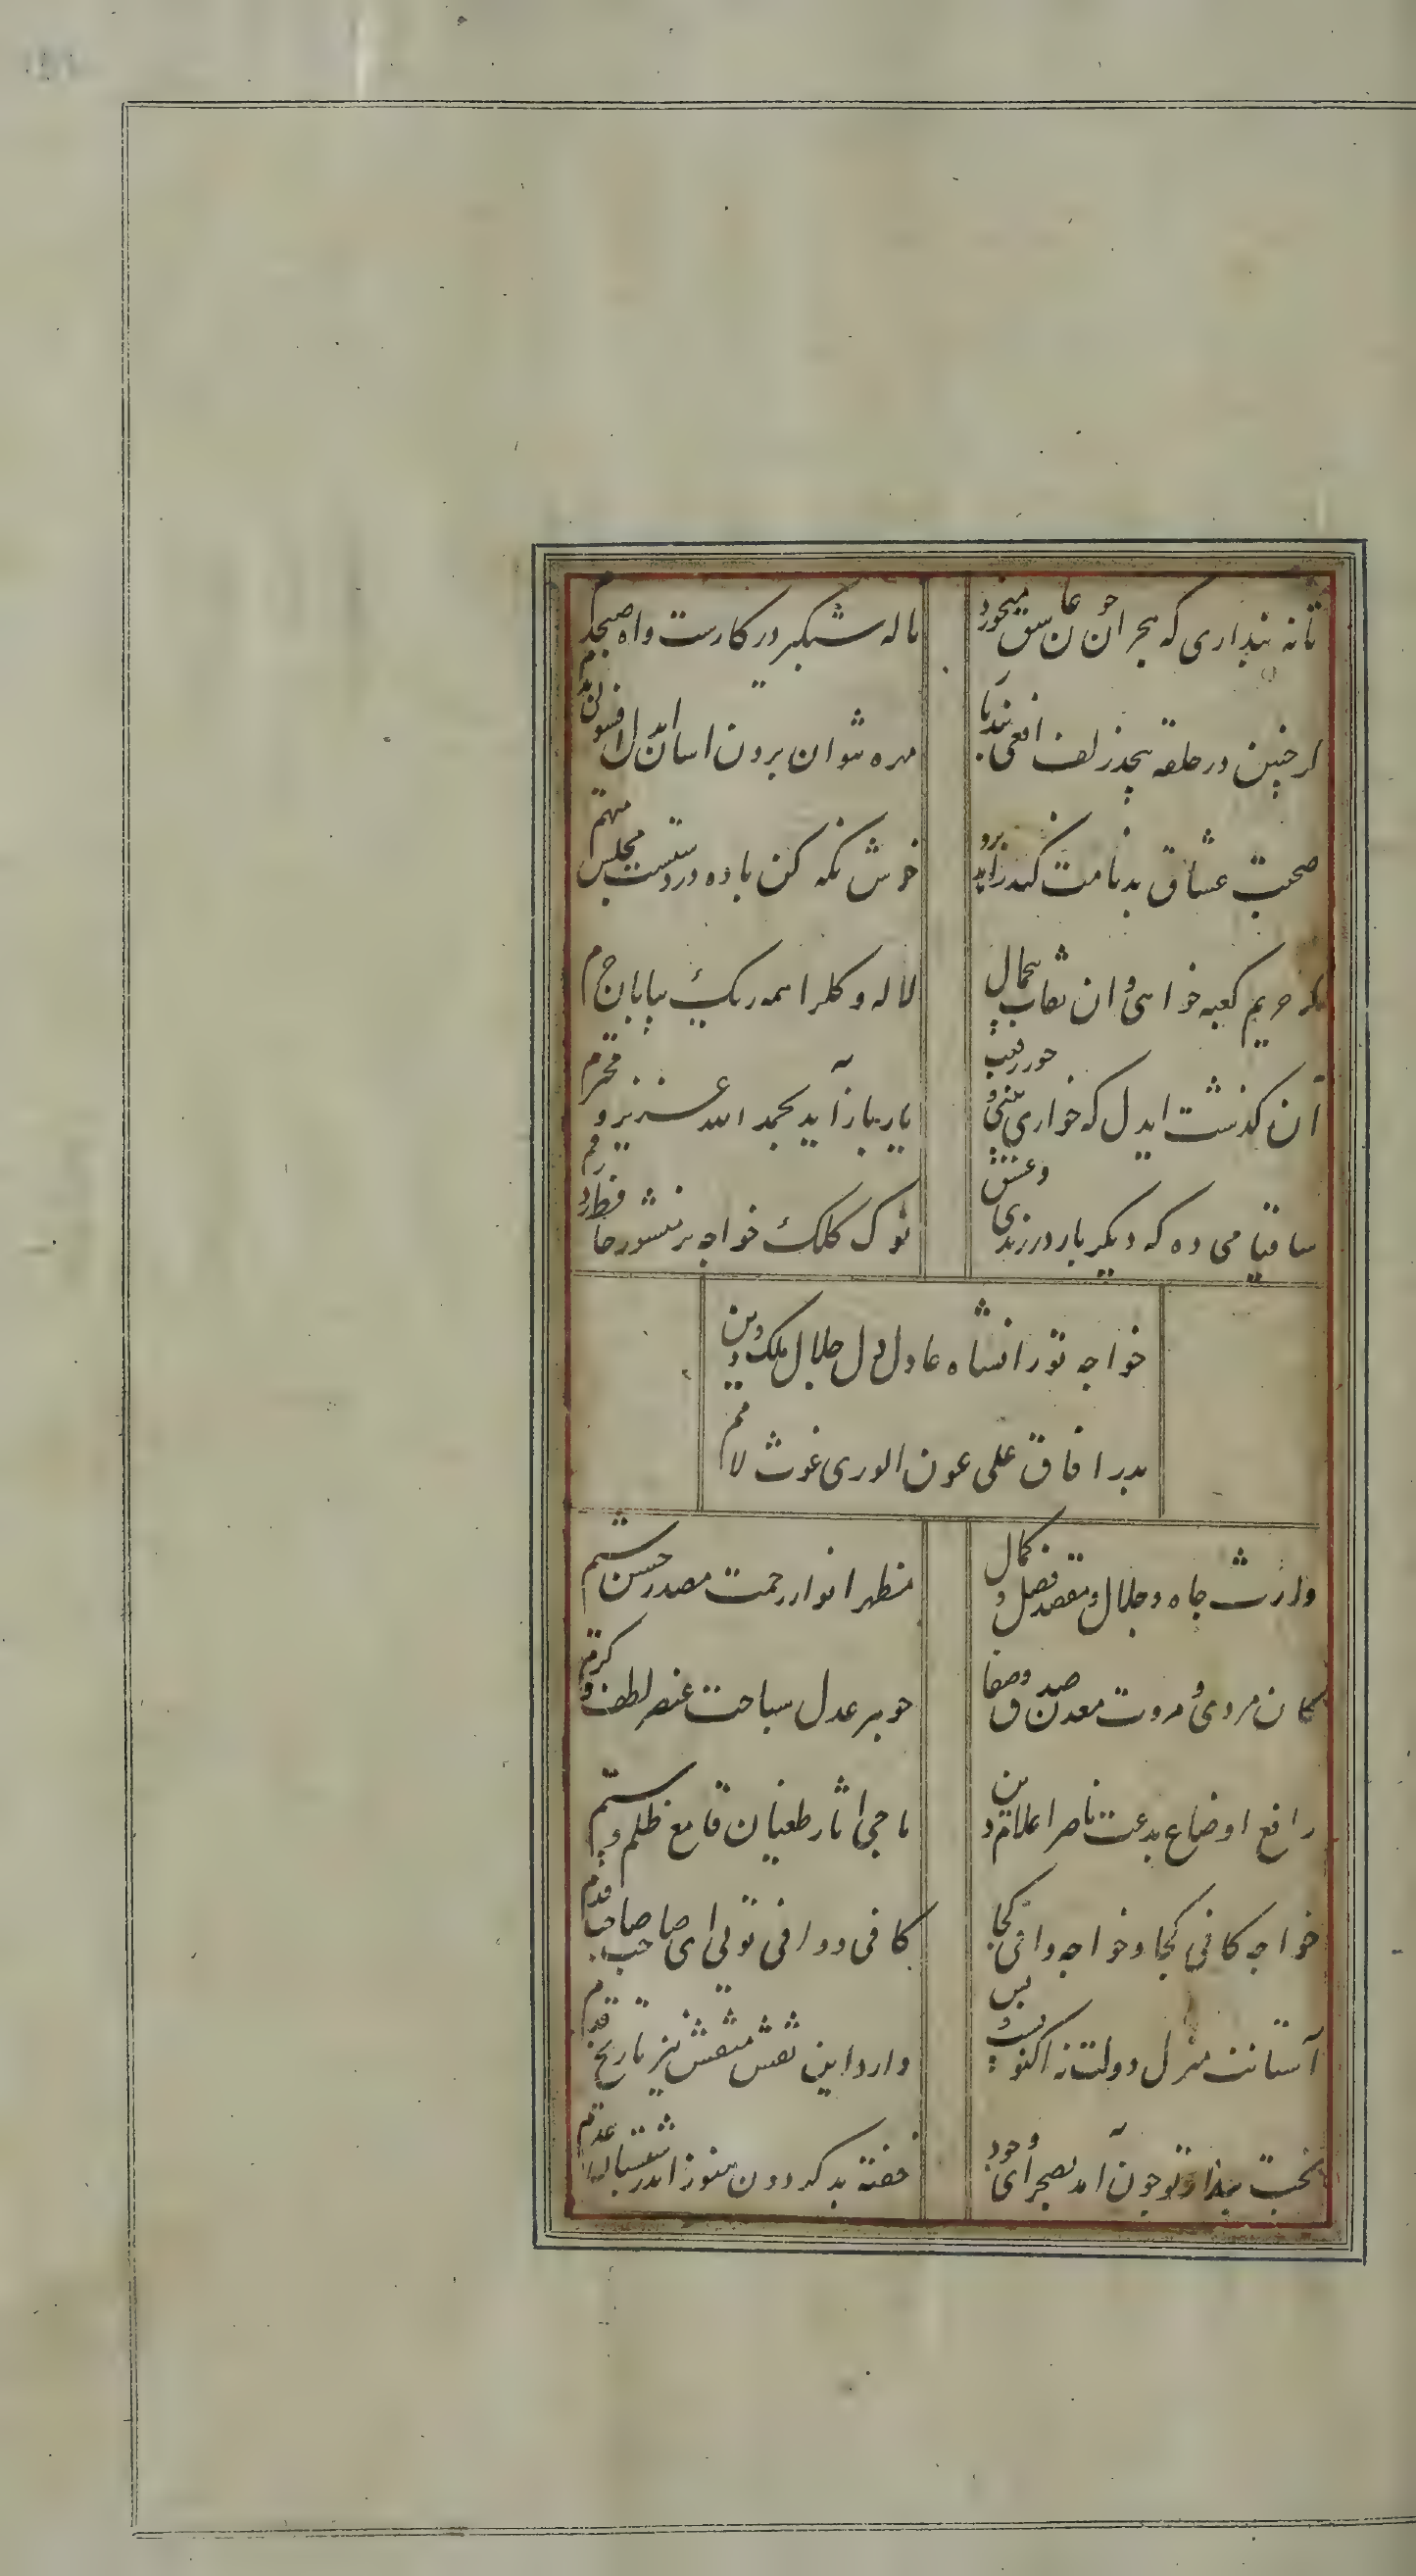 تا نه پنداری که هجران جو عاشق میخورد
ناله شبگیر در کارست و اه صبحدم
ار چنین در حلقه پیچد زلف افعی بند یا
مهره نتوان بردن اسان ای دل افسون
صحبت عشاق بدنامت کند زاهد برو
خوش نکه کن باده در دستست مجلس متهم
حریم کعبه خواهی و ان نقاب جمال
لاله و کلرا همه ریک بیابان حرم
آن کذشت ایدل که خواری جور رقیب
یار باز آید بحمد الله عزیز و محترم
ساقیا می ده که دیکر بار در رندی و عشق
نوک کلک خواجه بر منشور حافظ زد رقم
خواجه تورانشاه عادل دل جلال ملک و دین
بدر افاق علی عون الوری غوث لامم
وارث جاه و جلال و مقصد فضل و کمال
مظهر انوار رحمت مصدر حسن شیم
کان مردی و مروت معدن صدق و صفا
جوهر عدل سباحت عنصر لطف و کرم
رافع اوضاع بدعت ناصر اعلام دین
ماحی اثار طغیان قامع ظلم و ستم
خواجه کافی کجا و خواجه وافی کجا
کافی و وافی تویی ای صاحب صاحب قدم
آستانت منزل دولت نه اکنونست و بس
دارد این نقش منقش نیز تاریخ قدم
بخت بیدار تو چون آمد بصحرای وجود
خفته بد کردون هنوز اندر شبستان عدم